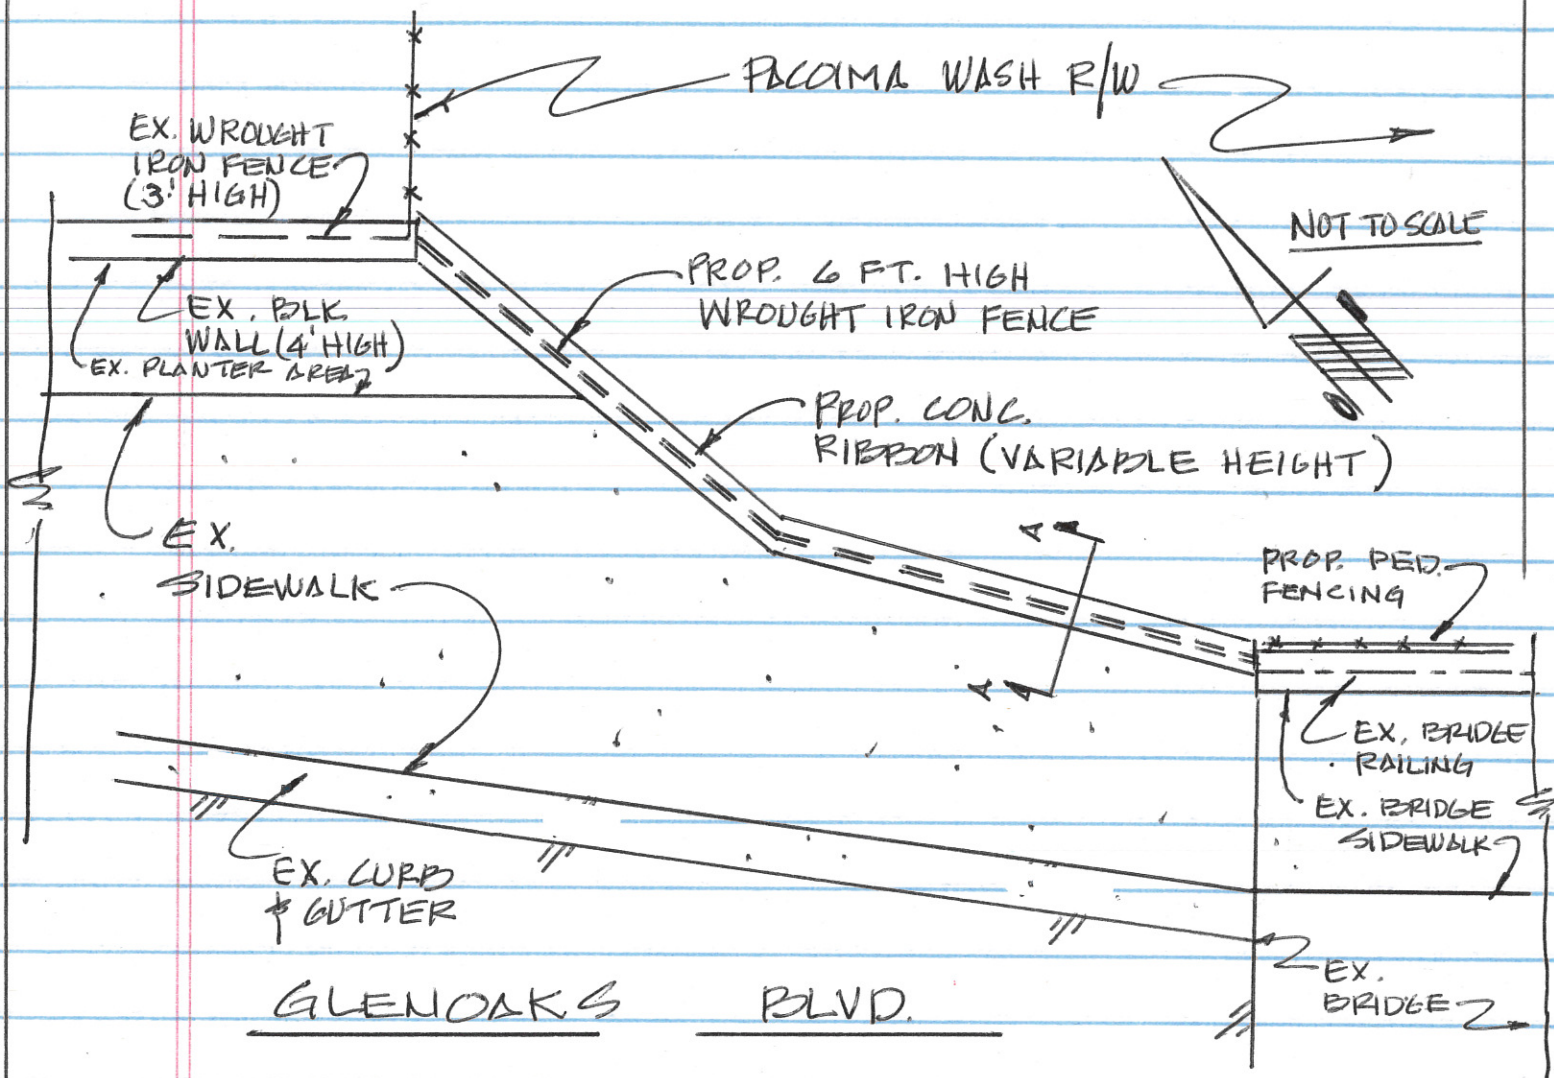 PACOIMA WASH R/W
EX. WROUGHT
IRON FENCE
(3' HIGH)
NOT TO SCALE
PROP. 6 FT. HIGH
WROUGHT IRON FENCE
EX. BLK
WALL (4' HIGH)
EX. PLANTER AREA
PROP. CONC.
RIBBON (VARIABLE HEIGHT)
EX.
SIDEWALK
A
PROP. PED.
FENCING
A
EX. BRIDGE
RAILING
EX. BRIDGE
SIDEWALK
EX. CURB
& GUTTER
EX.
BRIDGE
GLENOAKS BLVD.